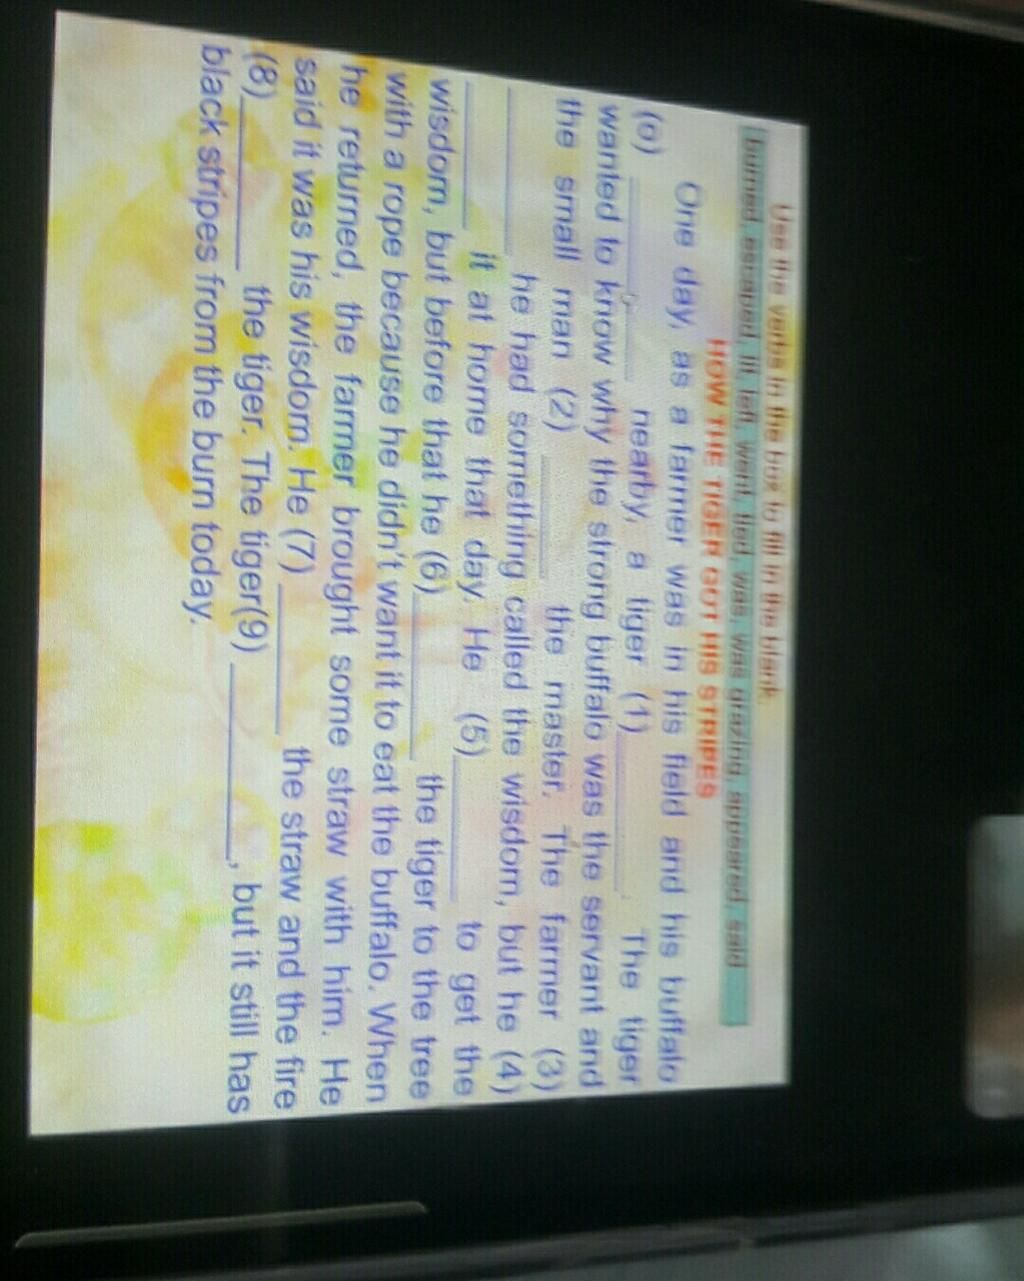 Use the verbs in the box to fill in the blank.
burned, escaped, lit, left, went, tied, was, was grazing, appeared, said
HOW THE TIGER GOT HIS STRIPES
One day, as a farmer was in his field and his buffalo
(o) ________ nearby, a tiger (1) ________. The tiger
wanted to know why the strong buffalo was the servant and
the small man (2) ________ the master. The farmer (3)
________ he had something called the wisdom, but he (4)
________ it at home that day. He (5) ________ to get the
wisdom, but before that he (6) ________ the tiger to the tree
with a rope because he didn't want it to eat the buffalo. When
he returned, the farmer brought some straw with him. He
said it was his wisdom. He (7) ________ the straw and the fire
(8) ________ the tiger. The tiger(9) ________, but it still has
black stripes from the burn today.